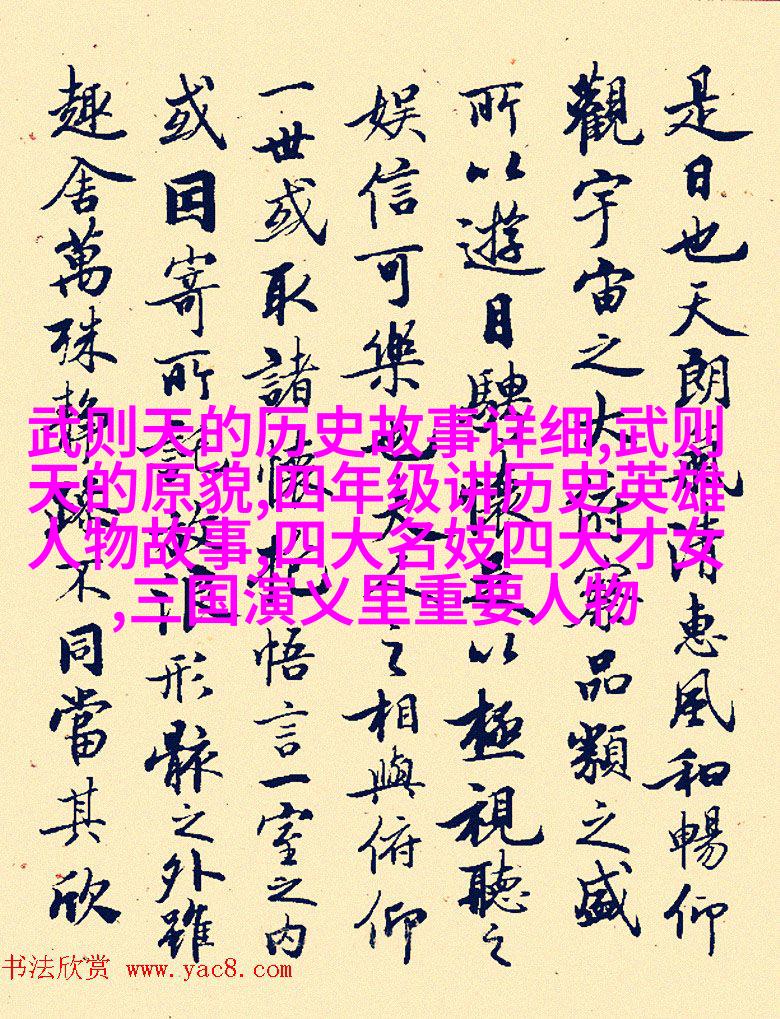 是日也天朗氣清惠風和暢仰
觀宇宙之大俯察品類之盛
所以遊目騁懷足以極視聽之
娱信可樂也夫人之相與俯仰
一世或取諸懷抱悟言一室之内
或因寄所託放浪形骸之外雖
趣舍萬殊静躁不同當其欣
武则天的历史故事详细,武则
天的原貌,四年级讲历史英雄
人物故事,四大名妓四大才女
,三国演义里重要人物
书法欣赏 www.yac8.com